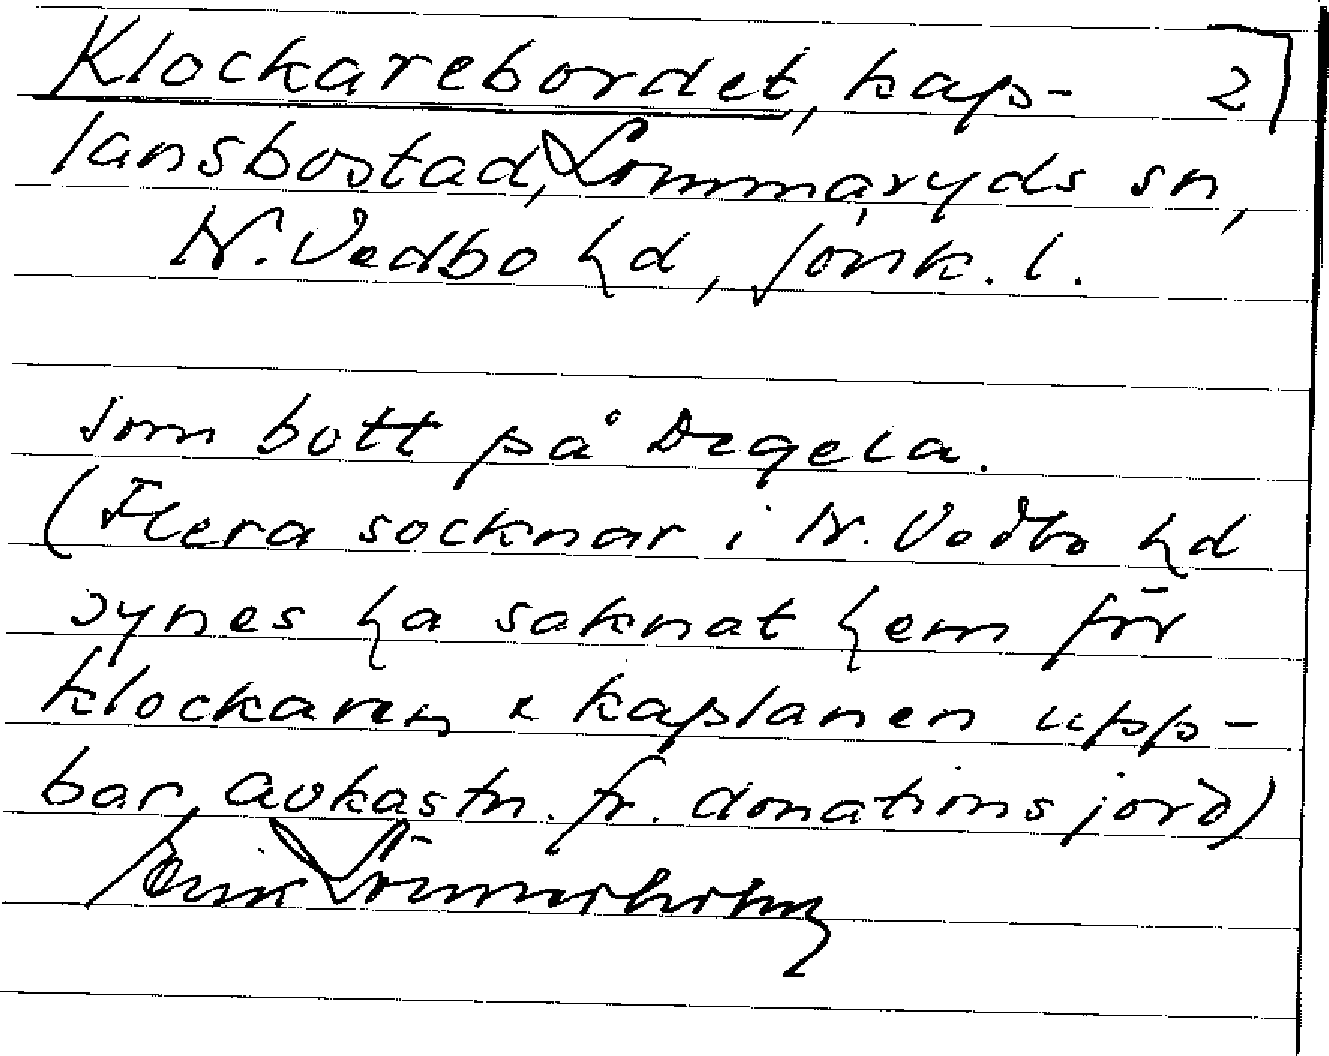 Klockarebordet, kap- 2
lansbostad, Lommaryds sn,
N. Vedbo hd, Jönk. l.
som bott på Degela.
(Flera socknar i N. Vedbo hd
synes ha saknat hem för
klockaren & kaplanen upp-
bar avkastn. fr. donationsjord)
Erik